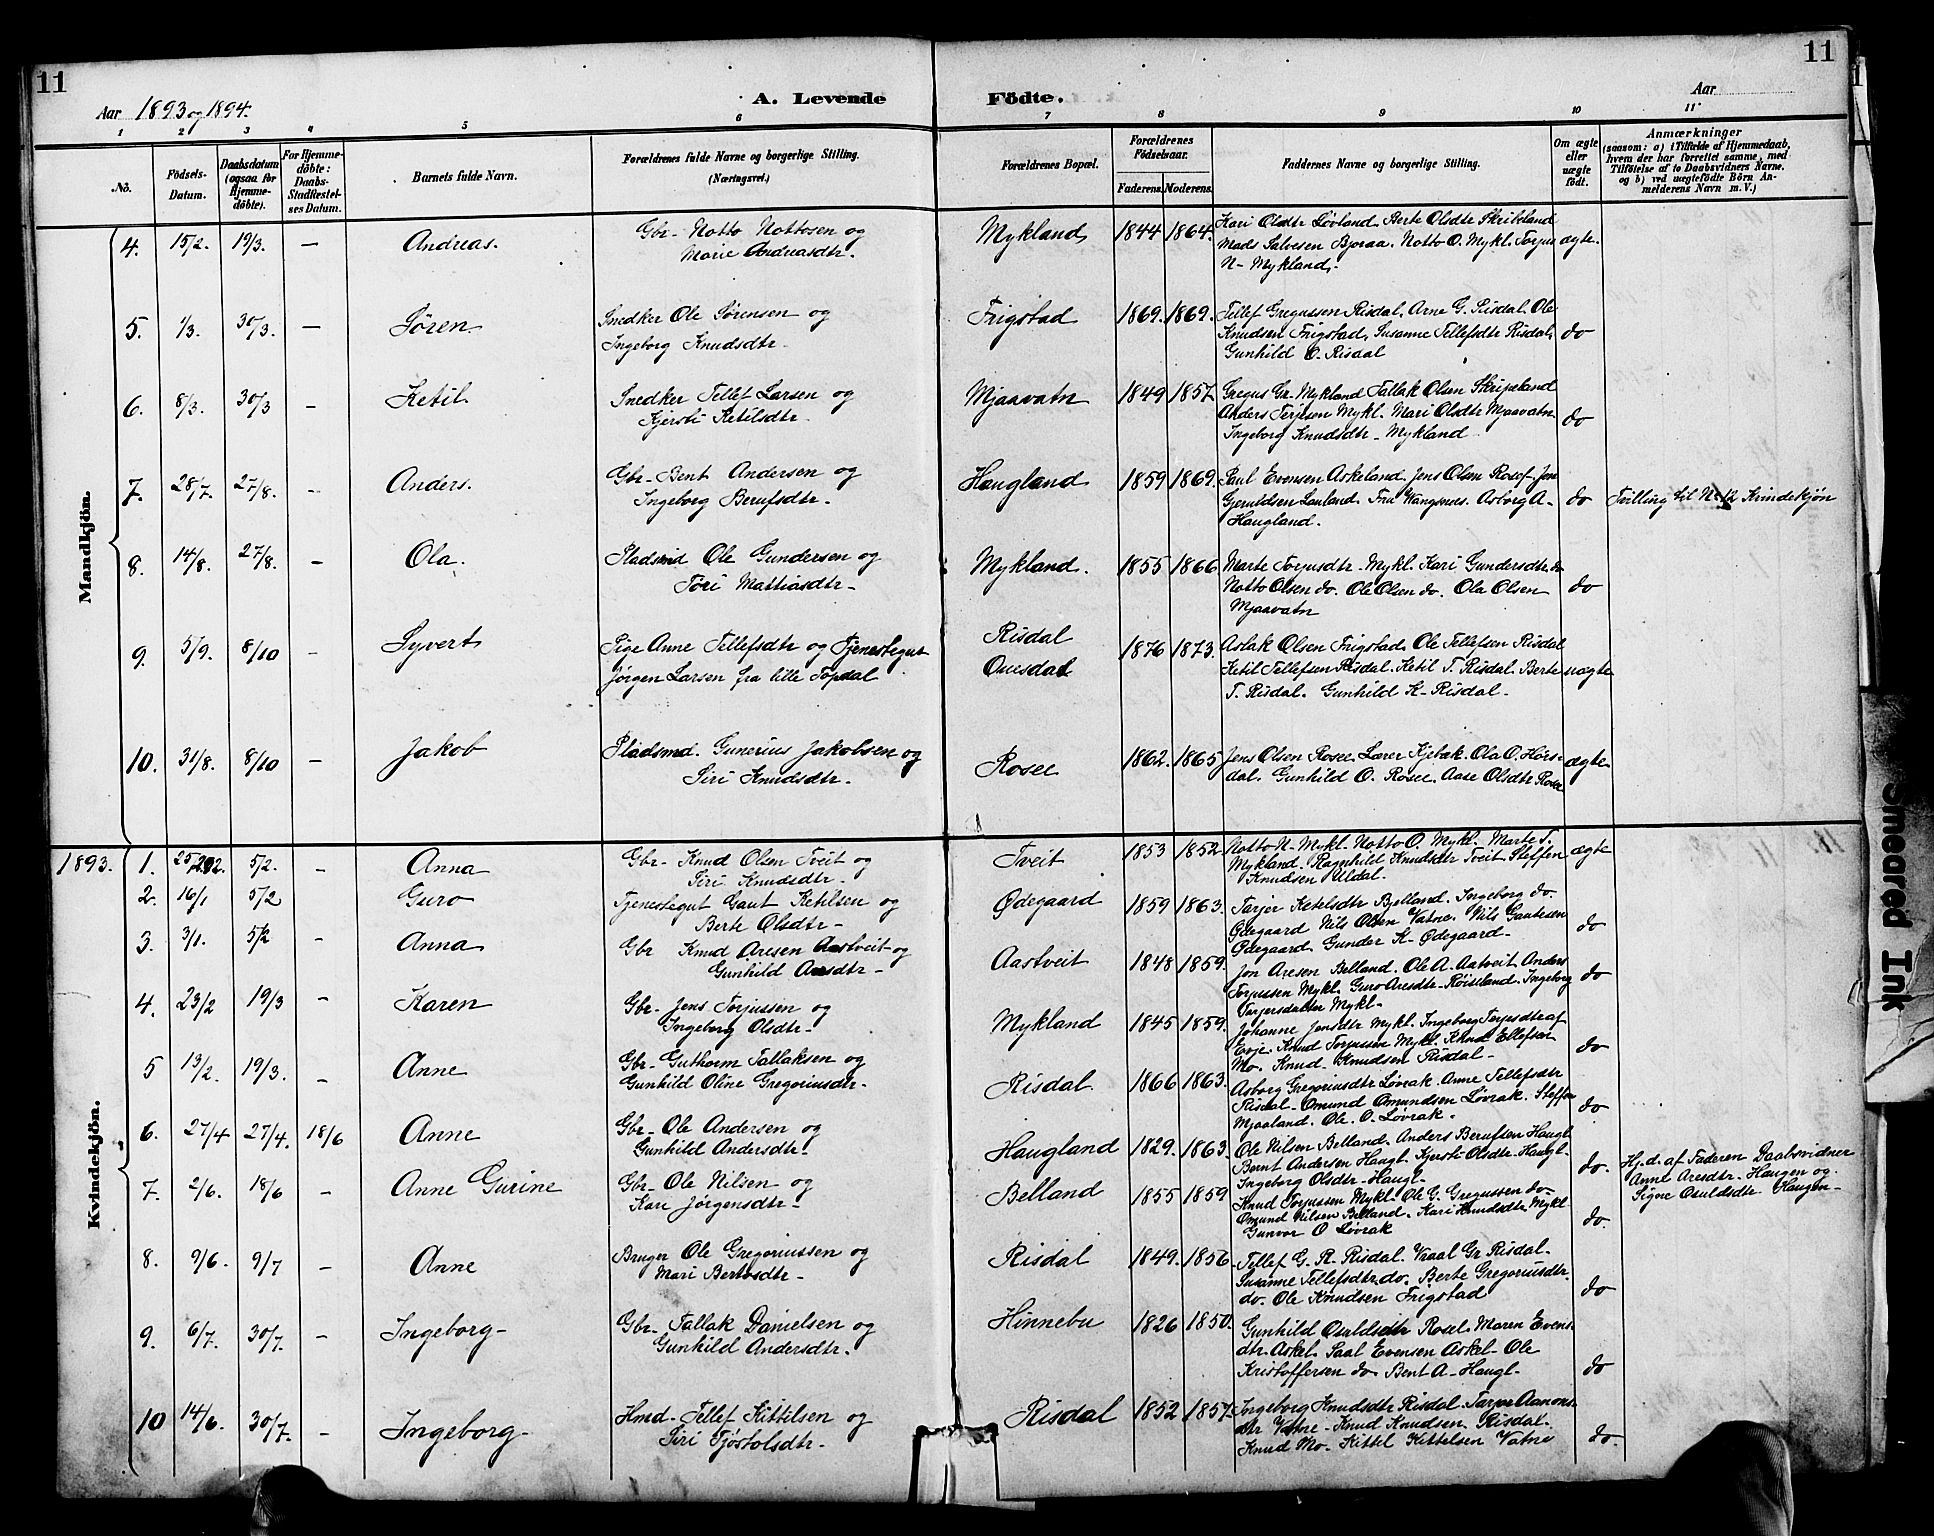 11
11
Aar 1893 og 1894.
A. Levende Födte.
Aar
1 2 3 4 5 6 7 8 9 10 11
No.
Födsels-Datum.
Daabsdatum (ogsaa for Hjemme-döbte).
For Hjemme-döbte: Daabs-Stadfæstel-ses Datum.
Barnets fulde Navn.
Forældrenes fulde Navne og borgerlige Stilling. (Næringsvei.)
Forældrenes Bopæl.
Forældrenes Födselsaar.
Faderens. Moderens.
Faddernes Navne og borgerlige Stilling.
Om ægte eller uægte födt.
Anmærkninger (saasom: a) i Tilfælde af Hjemmedaab, hvem der har forrettet samme, med Tilföielse af to Daabsvidners Navne, og b) ved uægtefödte Börn An-melderens Navn m. V.)
Mandkjön.
4. 15/2. 19/3. — Andreas. Gbr- Notto Nottosen og
Marie Andreasdtr. Mykland 1844 1864. Kari Olsdtr Løvland. Berte Olsdtr Skribeland
Mads Salvesen Bjoraa. Notto O. Mykl. Torjus ægte.
N- Mykland.
5. 1/3. 30/3. — Sören. Snedker Ole Sörensen og
Ingeborg Knudsdtr. Frigstad 1869. 1869. Tellef Gregussen Risdal. Arne G. Risdal. Ole
Knudsen Frigstad. Susanne Tellefsdtr Risdal. do
Gunhild O. Risdal
6. 8/3. 30/3 — Ketil. Snedker Tellef Larsen og
Kjersti Ketilsdtr. Mjaavatn 1849 1857. Gregus Gr. Mykland Tallak Olsen Skripeland
Anders Terjesen Mykl. Mari Olsdtr Mjaavatn. do
Ingeborg Knudsdtr- Mykland
7. 28/7. 27/8. — Anders. Gbr- Bent Andersen og
Ingeborg Berufsdtr. Haugland 1859 1869. Saul Evensen Askeland. Jens Olsen Rosef- Jon
Gjeruldsen Lauland. Fru Wangsnes. Asborg A- do Tvilling til No 12 Kvindekjøn
Haugland.
8. 14/8. 27/8. — Ola. Pladsmd Ole Gundersen og
Tori Mathiasdtr- Mykland. 1855 1866 Marte Torjusdtr- Mykl. Kari Gundersdtr. do
Notto Olsen do. Ole Olsen do. Ola Olsen do
Mjaavatn
9. 5/9. 8/10 — Syvert Pige Anne Tellefsdtr og Tjenestegut
Jörgen Larsen fra lille Topdal Risdal
Ouesdal 1876 1873. Aslak Olsen Frigstad. Ole Tellefsen Risdal
Ketil Tellefsen Risdal. Ketil T. Risdal. Berte uægte
T. Risdal. Gunhild K- Risdal-
10. 31/8. 8/10 — Jakob Pladsmd. Gunerius Jakobsen og
Siri Knudsdtr. Rosee 1862. 1865 Jens Olsen Rosee. Lærer Kjebæk. Ola O. Hörs-ægte
dal. Gunhild O. Rosee. Aase Olsdtr Rosee
1893.
Kvindekjön.
1. 5/2. — Anna Gbr- Knud Olsen Tveit og
Siri Knudsdtr- Tveit 1853 1852 Notto N- Mykl. Notto O. Mykl. Marte T. ægte
Mykland. Ragnhild Knudsdtr Tveit. Steffen
Knudsen Uldal.
2. 16/1 5/2 Guro Tjenestegut Gaut Ketilsen og
Berte Olsdtr- Ødegaard 1859 1863. Tarjer Ketelsdtr Bjelland. Ingeborg do.
Ødegaard Nils Olsen Vatne. Nils Gautesen do
Ødegaard. Gunder K- Ødegaard-
3. 3/1. 5/2 — Anna Gbr Knud Aresen Aastveit og
Gunhild Aresdtr- Aastveit 1848 1859. Jon Aresen Belland. Ole A. Aatveit Anders do
Torjussen Mykl. Guro Aresdtr- Röiseland. Ingeborg
Tarjersdatter Mykl-
4. 23/2 19/3 — Karen Gbr- Jens Torjussen og
Ingeborg Olsdtr- Mykland 1845 1859. Johanne Jensdtr Mykl. Ingeborg Torjusdtr af
Evje. Knud Torjussen Mykl. Knud Ellefsen do
Mo. Knud Knudsen Risdal-
5 13/2. 19/3. — Anne Gbr- Guthorm Tallaksen og
Gunhild Oline Gregoriusdtr- Risdal 1866 1863. Asborg Gregoriusdtr Løvrak. Anne Tellefsdtr
Risdal- Omund Omundsen Løvrak. Steffen do
Mjaaland. Ole. O. Løvrak-
6. 27/4 27/4. 18/6 Anne Gbr- Ole Andersen og
Gunhild Andersdtr. Haugland 1829. 1863. Ole Nilsen Belland. Anders Berufsen Haugl.
Bernt Andersen Haugl. Kjersti Olsdtr- Haugl. do. Hj.d. af Faderen Daabsvidner
Ingeborg Olsdtr- Haugl- Anne Aresdtr- Haugen og
Signe Osuldsdtr- Haugen-
7. 2/6. 18/6 — Anne Gurine Gbr- Ole Nilsen og
Kari Jørgensdtr- Belland 1855 1859 Knud Torjussen Mykl. Ole G. Gregussen do-
Omund Nilsen Belland. Kari Knudsdtr Mykl do.
Gunvor O Løvrak
8. 9/6. 9/7 — Anne Bruger Ole Gregoriussen og
Mari Bertosdtr- Risdal 1849. 1856 Tellef G. R. Risdal. Vraal Gr Risdal-
Susanne Tellefsdtr do. Berte Gregoriusdtr. do
do. Ole Knudsen Frigstad
9. 6/7. 30/7. — Ingeborg- Gbr- Tallak Danielsen og
Gunhild Andersdtr. Hinnebu 1826 1850. Gunhild Osuldsdtr Rosel. Maren Evens-
dtr. Askel. Saal Evensen Askel- Ole do
Kristoffersen do. Bent A- Haugl-
10 14/6. 30/7. — Ingeborg- Hmd- Tellef Kittilsen og
Siri Tjöstolsdtr- Risdal 1852 1857. Ingeborg Knudsdtr Risdal. Tarjer Aanons
dtr Vatne- Knud Knudsen Risdal. do.
Knud Mo. Kittil Kittelsen Vatne
Smeared Ink